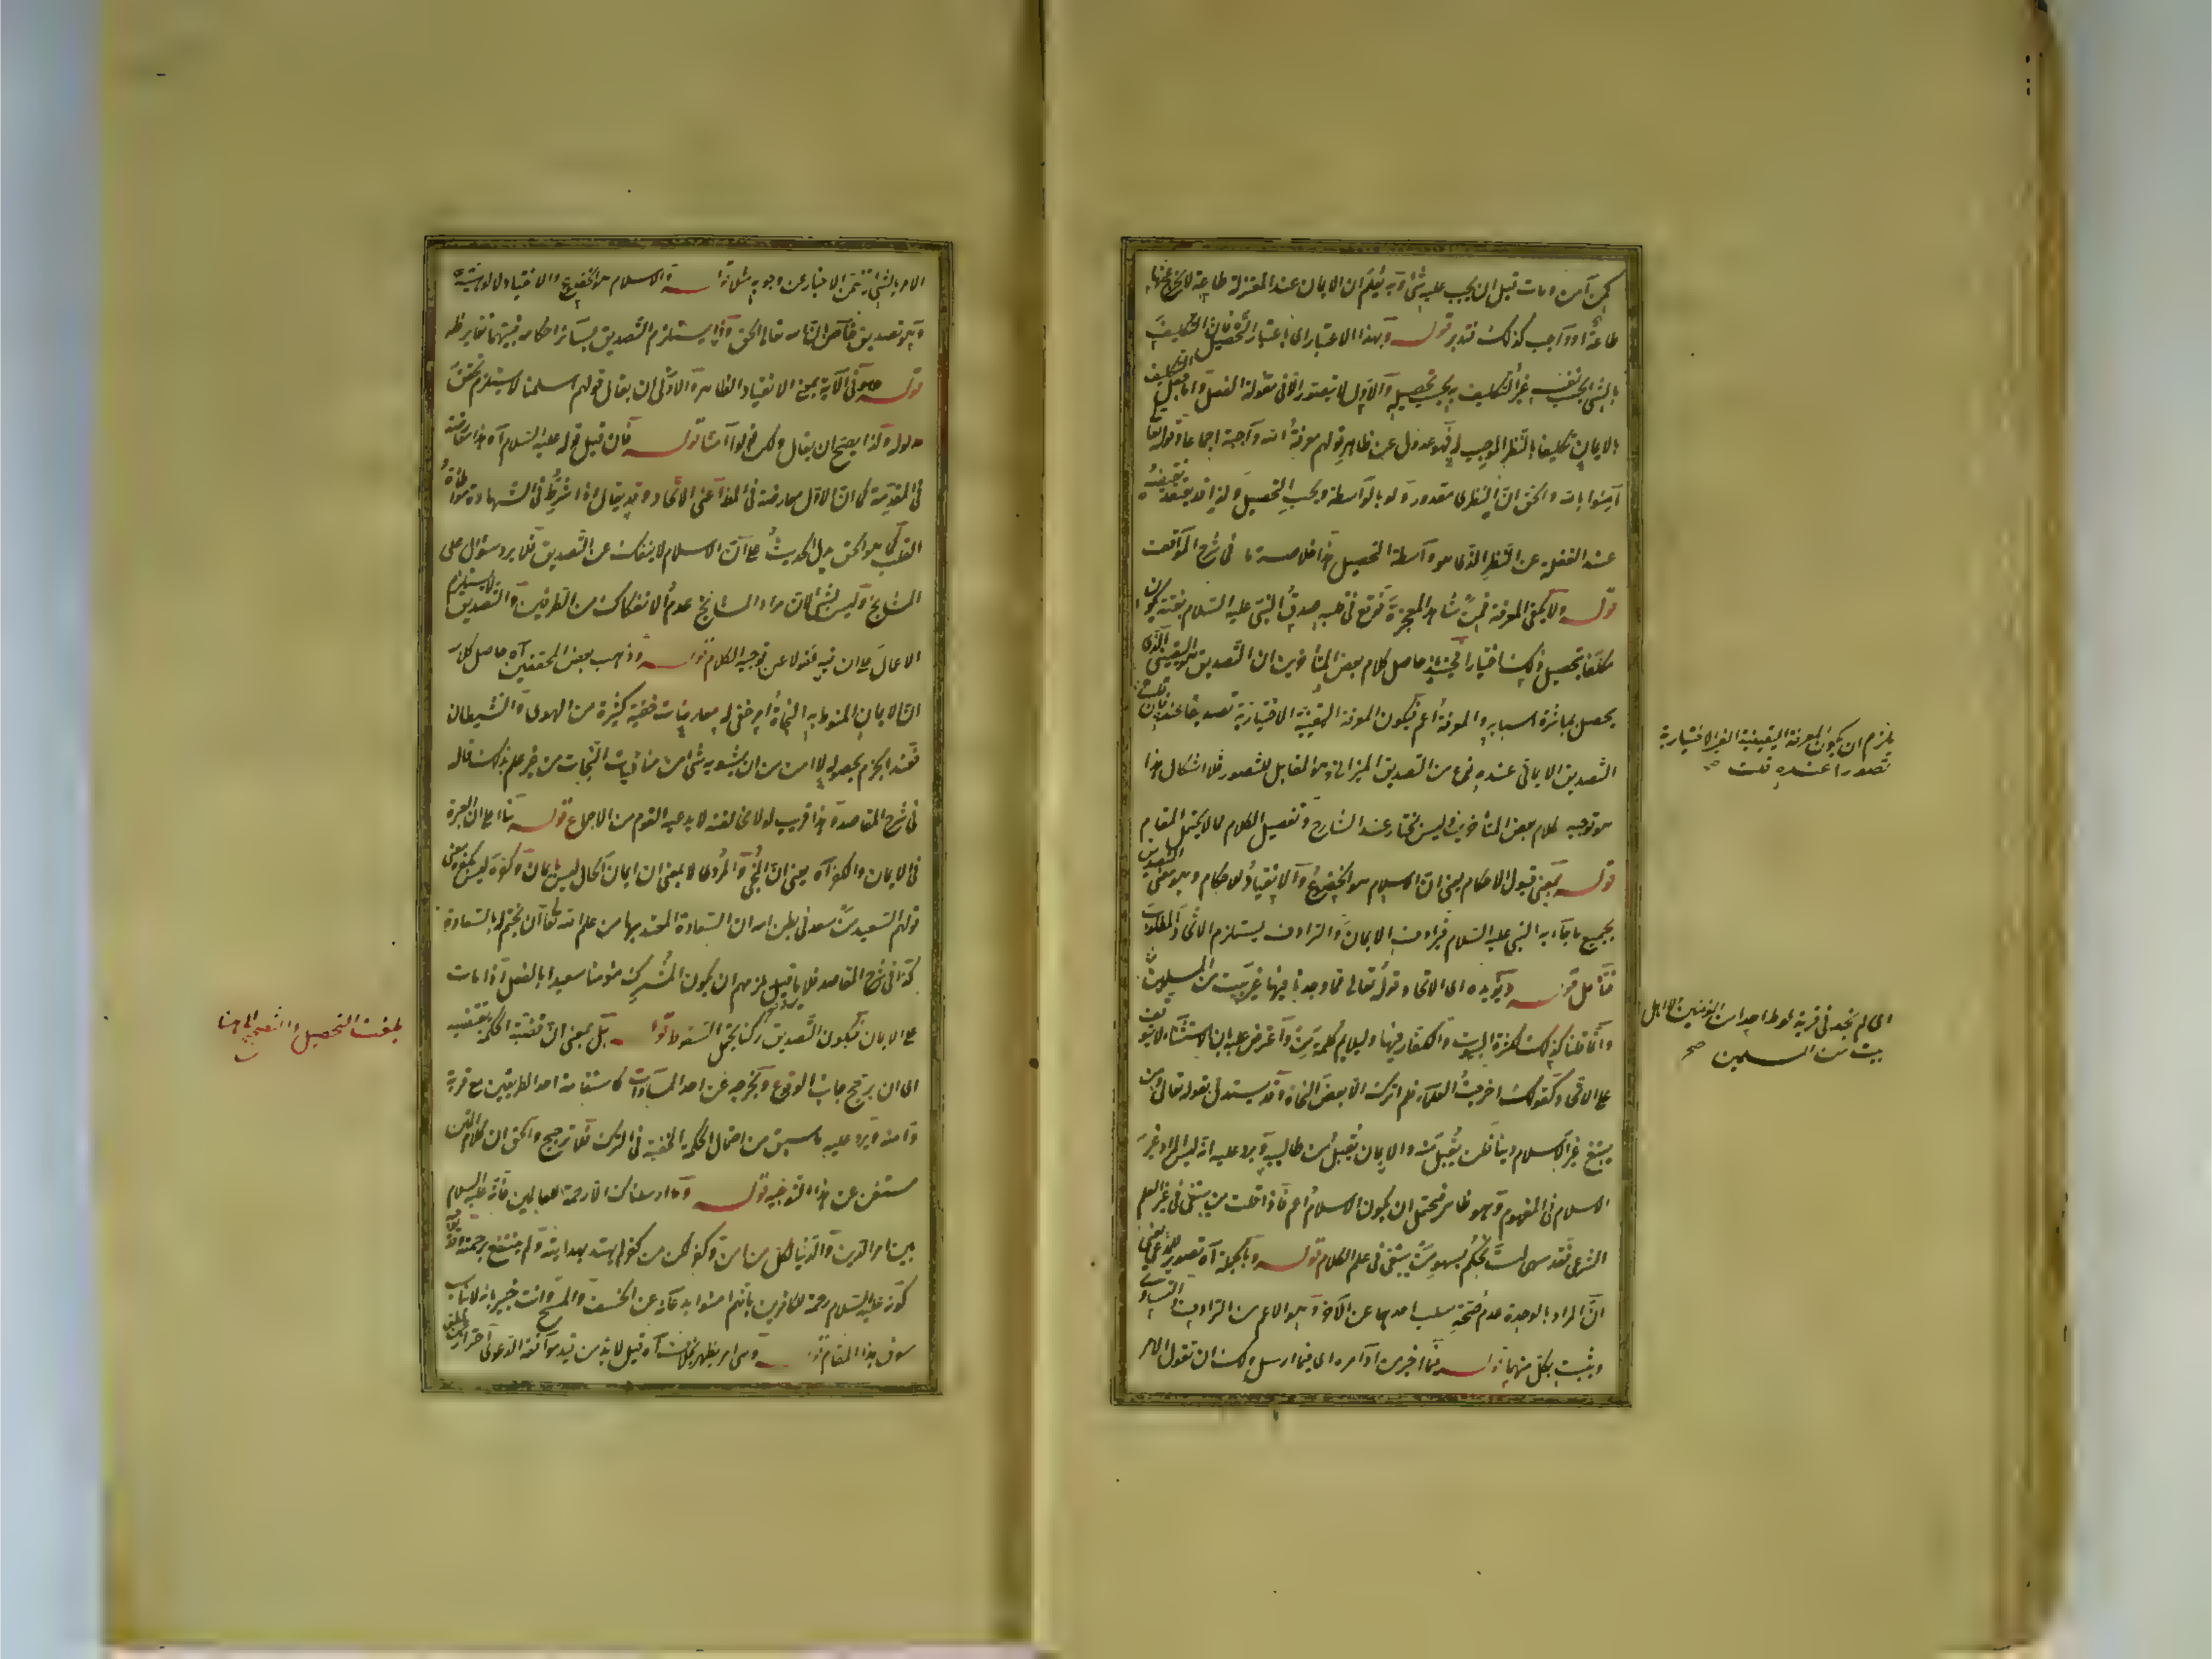 كمن آمن ومات قبل ان يجب عليه شئ وبه يعلم ان الايمان عند المعتزلة طاعة لا يخرج عنها
طاعة او واجب كذلك فتدبر قوله وبهذا الاعتبار اى باعتبار التحصيل فان التكليف
بالشئ بحسب نفسه غير التكليف به بحسب تحصيله والاول لا يتصور الا فى مقولة الفعل واما جعل التكليف
بالايمان تكليفا بالنظر الموجب له فهو عدول عن ظاهر قولهم معرفة الله واجبة اجماعا وقوله تعالى
آمنوا بالله والحق ان النظرى مقدور ولو بالواسطة وبحسب التحصيل ولذا قد يعتقد نقيضه
عند الغفلة عن النظر الذى هو واسطة التحصيل هذا خلاصة ما فى شرح المواقف
قوله ولا يكفى المعرفة فمن شاهد المعجزة فوقع فى قلبه صدق النبى عليه السلام بغتة يكون
مكلفا بتحصيل ذلك اختيارا فحينئذ حاصل كلام بعض المتأخرين ان التصديق هو اليقينى الذى
يحصل بمباشرة اسبابه والمعرفة اعم فيكون المعرفة اليقينية الاختيارية تصديقا عنده فان قلت
التصديق الايمانى عنده نوع من التصديق الميزانى وهو المقابل للتصور فلا اشكال هذا
هو توجيه كلام بعض المتأخرين وليس بمختار عند الشارح وتفصيل الكلام مما لا يحتمل المقام
قوله بمعنى قبول الاحكام يعنى ان الاسلام هو الخضوع والانقياد للاحكام وهو معنى التصديق
بجميع ما جاء به النبى عليه السلام فيرادف الايمان والترادف يستلزم الاتحاد المطلوب
فتأمل قوله ويؤيده اى الاتحاد قوله تعالى فما وجدنا فيها غير بيت من المسلمين
وانما قلنا كذلك لكثرة البيوت والكفار فيها وليلائم كلمة من واعترض عليه بان الاستثناء لا يتوقف
على الاتحاد كقولك اخرجت العلماء فلم اترك الا بعض النحاة وقد يستدل بقوله تعالى ومن
يبتغ غير الاسلام دينا فلن يقبل منه والايمان يقبل من طالبه ويرد عليه انه ليس المراد غير
الاسلام فى المفهوم وهو ظاهر فيحتمل ان يكون الاسلام اعم فاذا قلت من يبتغى غير العلم
الشرعى فقد سهى لست تحكم بسهو من يبتغى فى علم الكلام قوله وبالجملة آه تصوير للمدعى يعنى
ان المراد بالوحدة عدم صحة سلب احدهما عن الآخر وهو الاعم من الترادف والتساوى
ويثبت بكل منهما قوله فيما اخبر من اوامره اى فيما ارسل ولك ان تقول الامر
يلزم ان يكون المعرفة اليقينية الغير الاختيارية
تصورا عنده قلت صح
اى لم نجد فى قرية لوط احدا من المؤمنين الا اهل
بيت من المسلمين صح
الامر بالشئ تضمن الاخبار عن وجوبه مثلا قوله والاسلام هو الخضوع والانقياد لالوهيته
وهو تصديق خاص بالله تعالى الحق وانه يستلزم التصديق بسائر احكامه فبينهما تغاير ظاهر
قوله وهو فى الآية بمعنى الانقياد الظاهر والاولى ان يقال قولهم اسلمنا لا يستلزم تحقق
مدلوله ولذا يصح ان يقال ولكن قولوا آمنا قوله فان قيل قوله عليه السلام آه هذا معارضة
فى المقدمة كما ان الاول معارضة فى المدعى اعنى الاتحاد وقد يقال اذا شرط فى الشهادة مواطأة
القلب كما هو الحق يدل الحديث على ان الاسلام لا ينفك عن التصديق فلا يرد سؤال على
المشايخ وليس بشئ لان مراد المشايخ عدم الانفكاك من الطرفين والتصديق لا يستلزم
الاعمال على ان فيه غفولا عن توجيه الكلام قوله وذهب بعض المحققين آه حاصل كلامه
ان الايمان المنوط به النجاة امر خفى له معارضات خفية كثيرة من الهوى والشيطان
فعند الجزم بحصوله لا امن من ان يشوبه شئ من منافيات النجات من غير علم بذلك قال
فى شرح المقاصد وهذا قريب لولا مخالفته لا يدعيه القوم من الاجماع قوله بناء على ان العبرة
فى الايمان والكفر آه يعنى ان المنجى والمردى لا بمعنى ان ايمان الحال ليس بايمان وكفره ليس بكفر ومعنى
قولهم السعيد من سعد فى بطن امه ان السعادة المعتد بها من علم الله تعالى ان يختم له بالسعادة
كذا فى شرح المقاصد فلا يرد ما قيل يلزمهم ان يكون المشرك مؤمنا سعيدا بالفعل اذا مات
على الايمان فيكون التصديق ركنا يحتمل السقوط قوله بل بمعنى ان قضية الحكمة تقتضيه
اى ان يرجح جانب الوقوع ويخرجه عن احد المساوات كاستقامة احد الطريقين مع قربة
وامنه ويرد عليه ما سبق من احتمال الحكمة الخفية فى الترك فلا ترجيح والحق ان كلام المتن
مستغن عن هذا التوجيه قوله وما ارسلناك الا رحمة للعالمين فانه عليه السلام
بين امر الدين والدنيا لكل من آمن وكفر لكن من كفر لم يهتد بهدايته ولم ينتفع برحمته
كونه عليه السلام رحمة للكافرين بانهم امنوا بدعائه عن الخسف والمسخ وانت خبير بانه لا يناسب
سوق هذا المقام قوله وهى امر يظهر بخلاف آه قيل لا بد من قيد موافقة الدعوى احترازا
بلغت التحصيل والتصحيح الى هنا